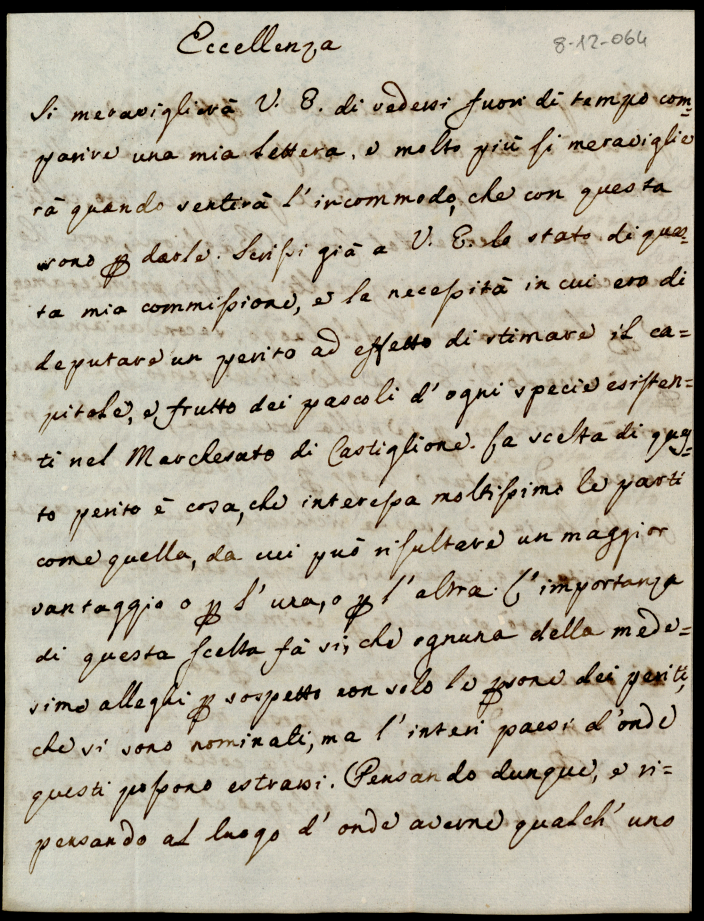 Eccellenza
8-12-064
Si meraviglierà V. E. di vedersi fuori di tempo com=
parire una mia lettera, e molto più si meraviglie
rà quando sentirà l'incommodo, che con questa
sono ꝑ darle. Scrissi già a V. E. lo stato di ques=
ta mia commissione, e la necessità in cui ero di
deputare un perito ad effetto di stimare il ca=
pitale, e frutto dei pascoli d'ogni specie esisten=
ti nel Marchesato di Castiglione. La scelta di ques=
to perito è cosa, che interessa moltissimo le parti
come quella, da cui può risultare un maggior
vantaggio o ꝑ l'una, o ꝑ l'altra. L'importanza
di questa scelta fà sì, che ognuna delle mede=
sime alleghi ꝑ sospetto non solo le ꝑsone dei periti,
che si sono nominati, ma l'interi paesi d'onde
questi possono estrarsi. Pensando dunque, e ri=
pensando al luogo d'onde averne qualch'uno